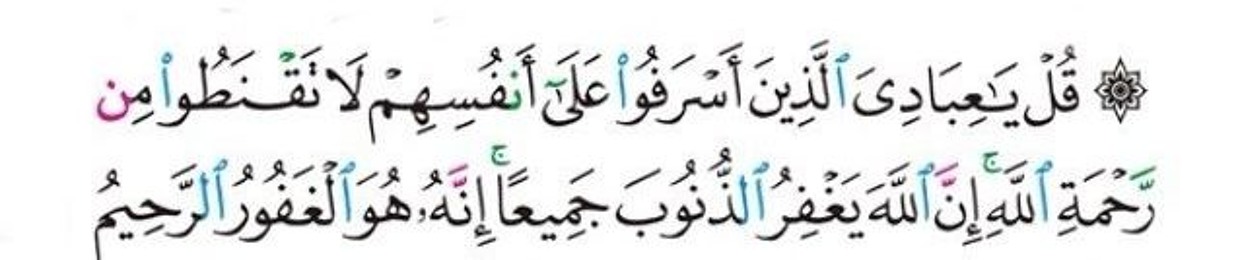 ۞ قُلْ يَـٰعِبَادِىَ ٱلَّذِينَ أَسْرَفُوا۟ عَلَىٰٓ أَنفُسِهِمْ لَا تَقْنَطُوا۟ مِن
رَّحْمَةِ ٱللَّهِ ۚ إِنَّ ٱللَّهَ يَغْفِرُ ٱلذُّنُوبَ جَمِيعًا ۚ إِنَّهُۥ هُوَ ٱلْغَفُورُ ٱلرَّحِيمُ